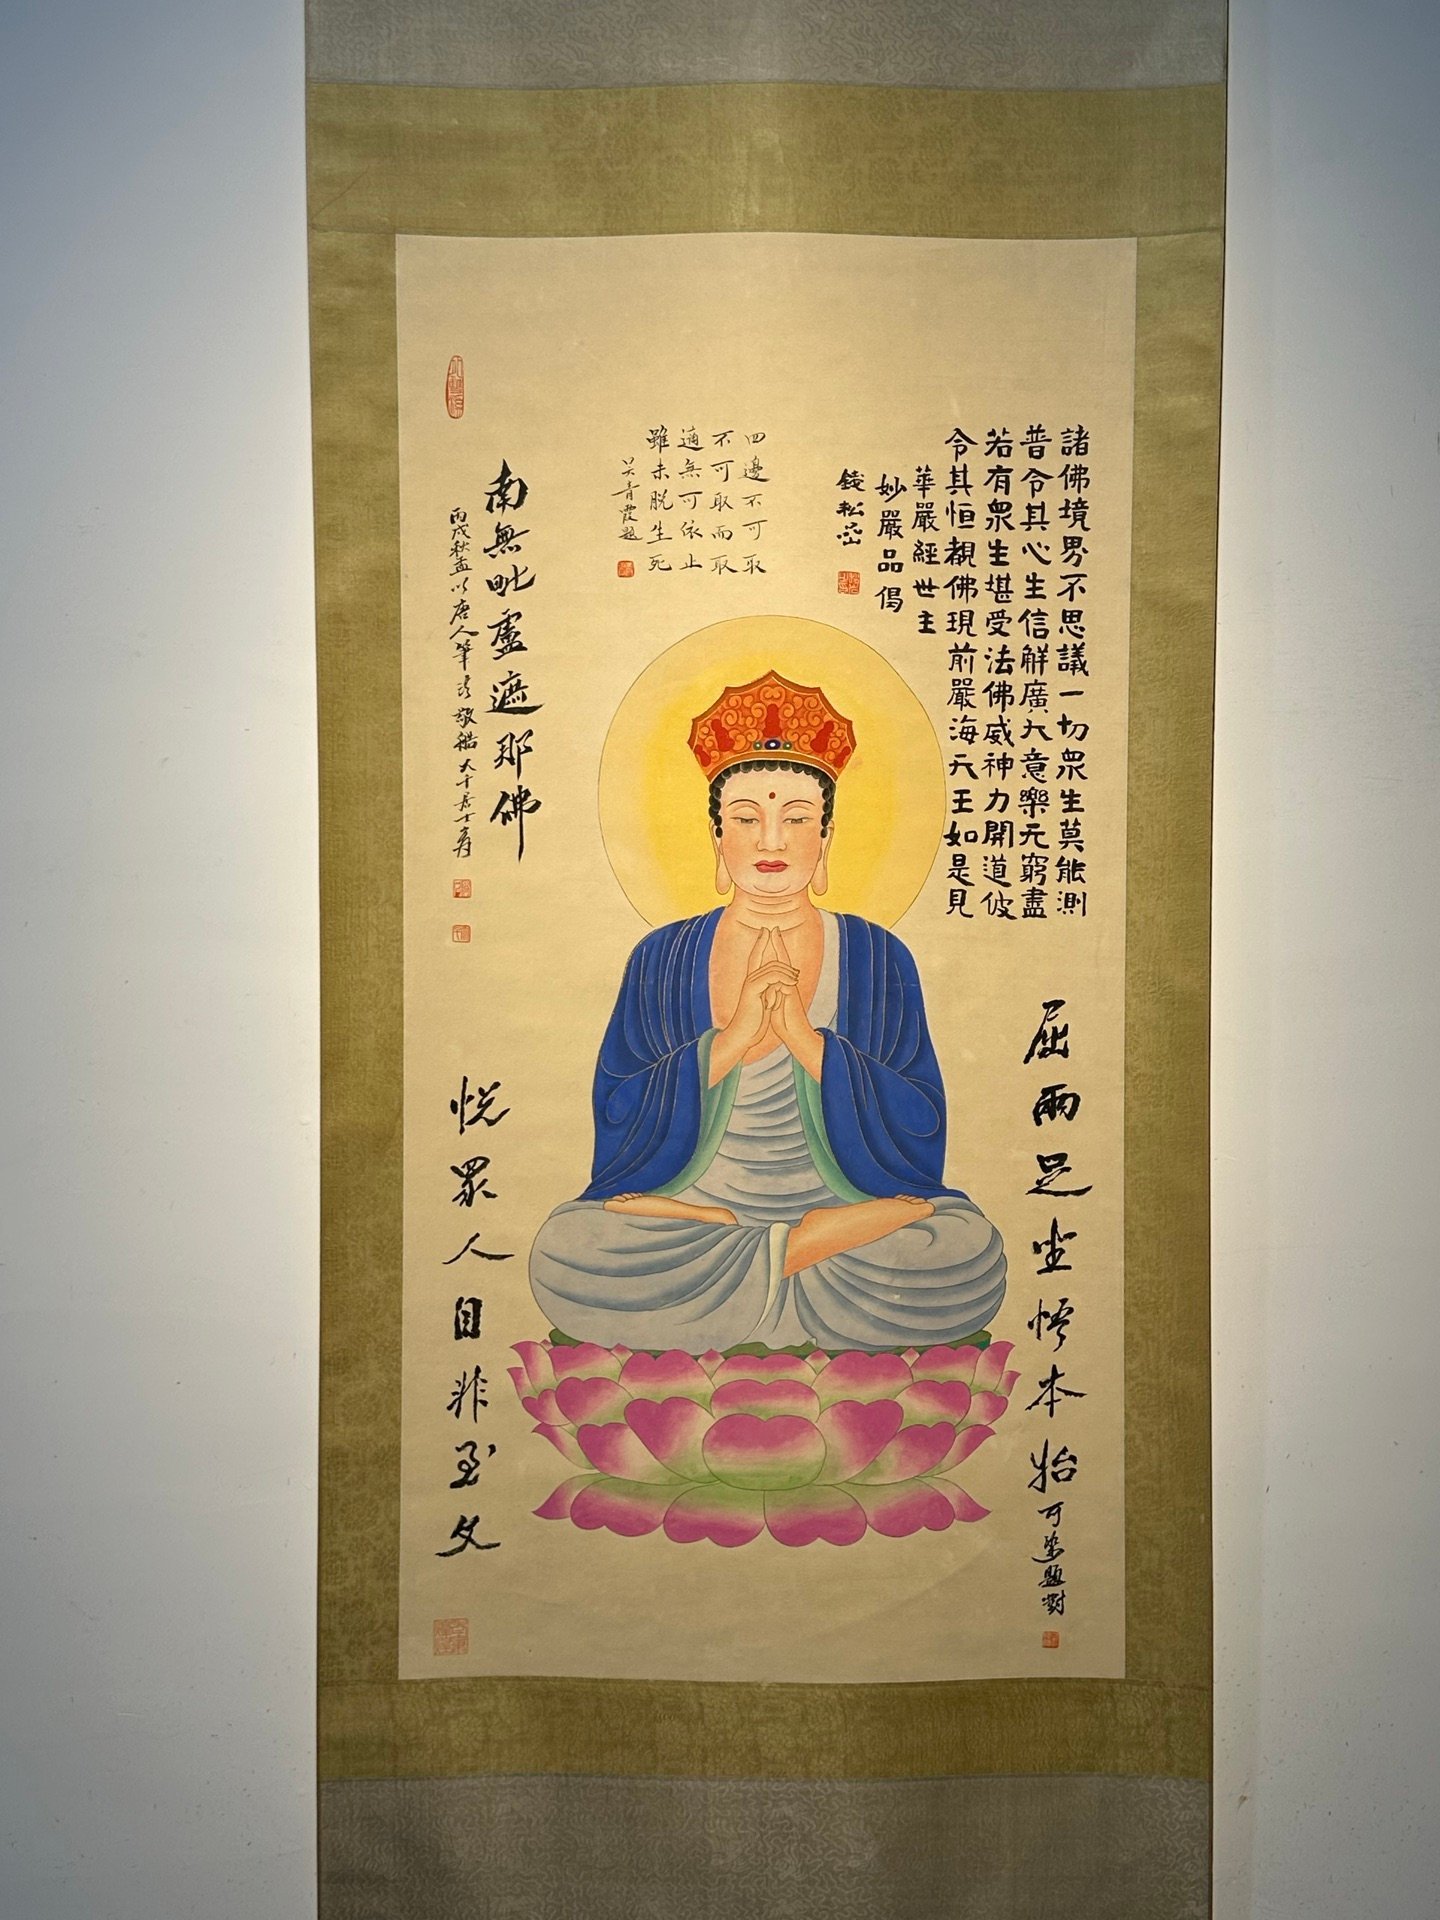 諸佛境界不思議一切衆生莫能測
普令其心生信解廣大意樂无窮盡
若有衆生堪受法佛威神力開道彼
令其恒覩佛現前嚴海天王如是見
華嚴經世主
妙嚴品偈
錢松嵒
四邊不可取
不可取而取
適無可依止
雖未脱生死
吴青霞題
南無毗盧遮那佛
丙戌秋孟以唐人筆法敬橅大千居士爰
屈兩足坐悟本
可染題對
悦眾人目非至文